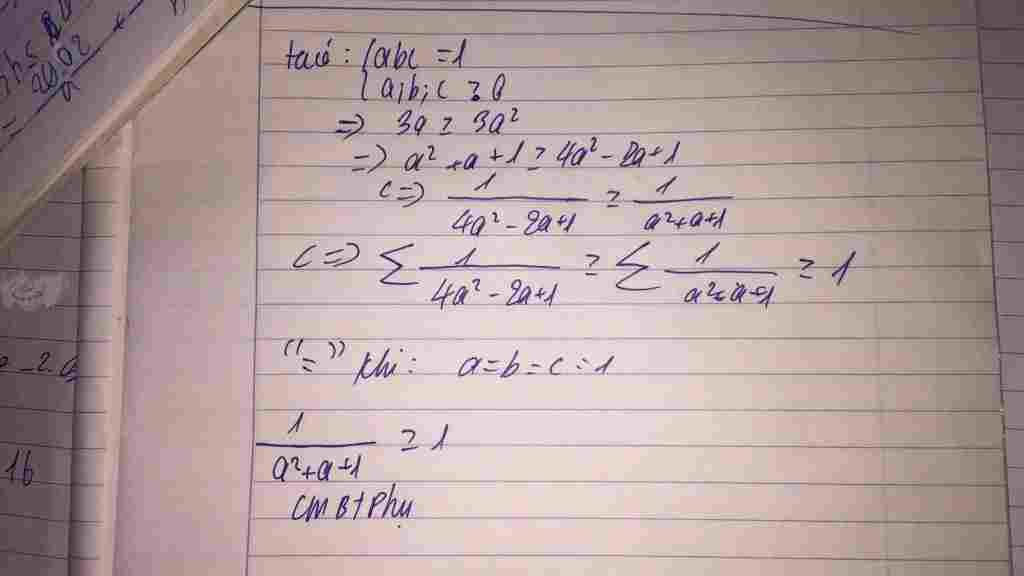 ta có : { abc = 1
{ a,b,c ≥ 0
=> 3a ≥ 3a²
=> a² + a + 1 ≥ 4a² - 2a + 1
<=> 1/(4a² - 2a + 1) ≥ 1/(a² + a + 1)
<=> ∑ 1/(4a² - 2a + 1) ≥ ∑ 1/(a² + a + 1) ≥ 1
"=" khi : a = b = c = 1
1/(a² + a + 1) ≥ 1
CM Bt Phụ
16